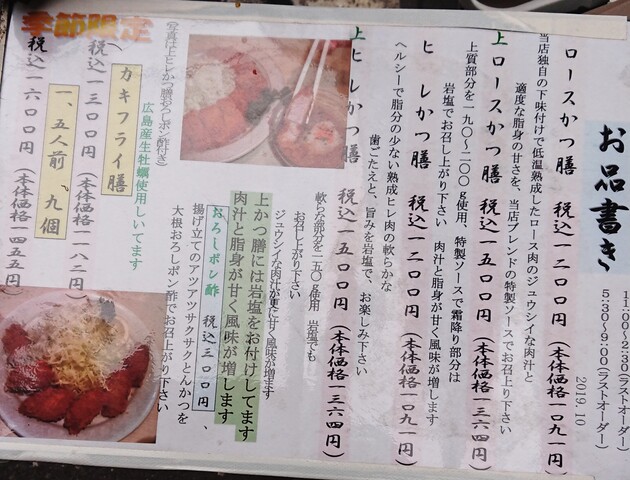 お品書き
11:00～2:30(ラストオーダー)
5:30～9:00(ラストオーダー)
2019.10
ロースかつ膳 税込一二〇〇円(本体価格一〇九一円)
当店独自の下味付けで低温熟成したロース肉のジュウシイな肉汁と
適度な脂身の甘さを、当店ブレンドの特製ソースでお召上り下さい
上ロースかつ膳 税込一五〇〇円(本体価格一三六四円)
上質部分を一九〇～二〇〇g使用、特製ソースで霜降り部分は
岩塩でお召し上がり下さい 肉汁と脂身が甘く風味が増します
ヒレかつ膳 税込一二〇〇円(本体価格一〇九一円)
ヘルシーで脂分の少ない熟成ヒレ肉の軟らかな
歯ごたえと、旨みを岩塩で、お楽しみ下さい
上ヒレかつ膳 税込一五〇〇円(本体価格一三六四円)
軟らな部分を一五〇g使用 岩塩でも
お召し上がり下さい
ジュウシイな肉汁が更に甘く風味が増ます
上かつ膳には岩塩をお付けしてます
肉汁と脂身が甘く風味が増します
おろしポン酢 税込三〇〇円、
揚げ立てのアツアツサクサクとんかつを
大根おろしポン酢でお召し上がり下さい
(写真は上ヒレかつ膳おろしポン酢付き)
季節限定
広島産生牡蠣使用しいてます
カキフライ膳
税込一三〇〇円(本体価格一一八二円)
一、五人前 九個
税込一六〇〇円(本体価格一四五五円)